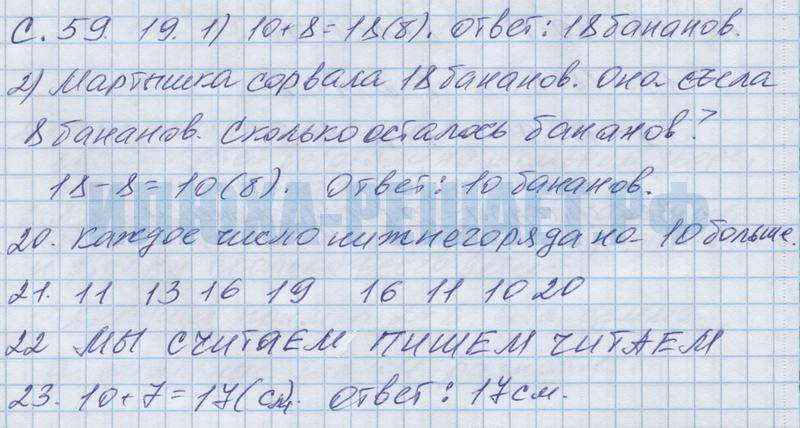 С. 59. 19. 1) 10+8=18(б). Ответ: 18 бананов.
2) Мартышка сорвала 18 бананов. Она съела
8 бананов. Сколько осталось бананов?
18-8=10(б). Ответ: 10 бананов.
20. Каждое число нижнего ряда на 10 больше.
21. 11 13 16 19 16 11 10 20
22 МЫ СЧИТАЕМ ПИШЕМ ЧИТАЕМ
23. 10+7=17(см). Ответ: 17 см.